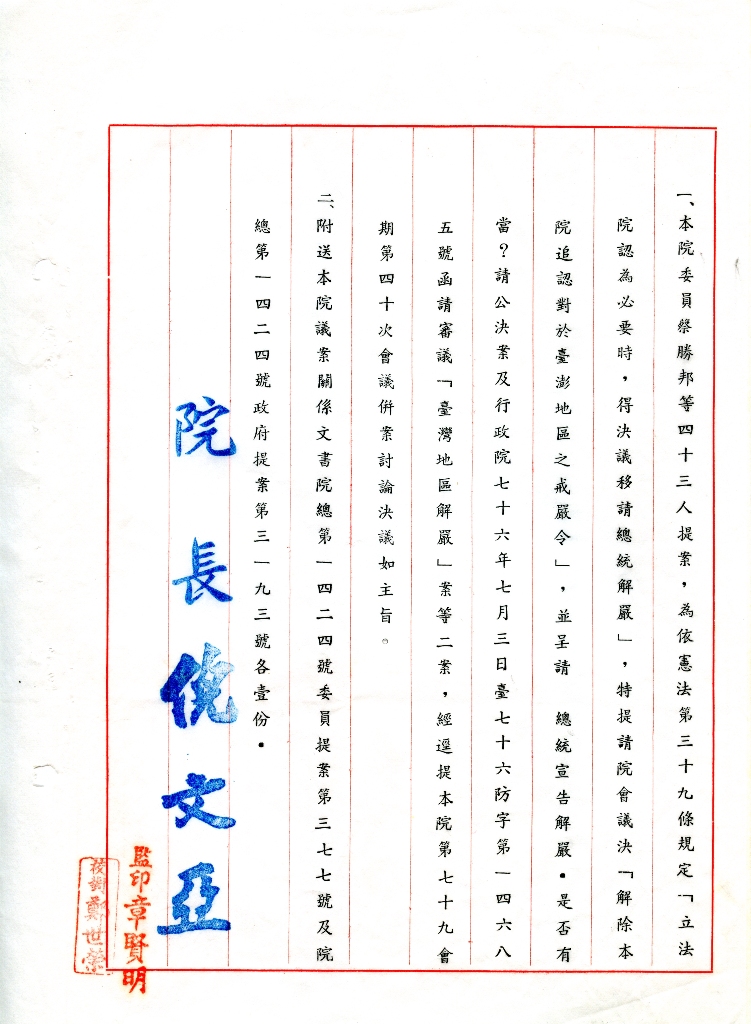 一、本院委員蔡勝邦等四十三人提案，為依憲法第三十九條規定「立法
院認為必要時，得決議移請總統解嚴」，特提請院會議決「解除本
院追認對於臺澎地區之戒嚴令」，並呈請　總統宣告解嚴。是否有
當？請公決案及行政院七十六年七月三日臺七十六防字第一四六八
五號函請審議「臺灣地區解嚴」案等二案，經逕提本院第七十九會
期第四十次會議併案討論決議如主旨。
二、附送本院議案關係文書院總第一四二四號委員提案第三七七號及院
總第一四二四號政府提案第三一九三號各壹份。
院長倪文亞
監印章賢明
校對鄭世榮